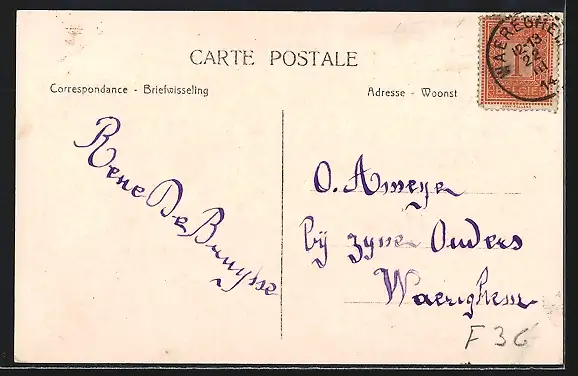 CARTE POSTALE
Correspondance - Briefwisseling
Adresse - Woonst
WAEREGHEM
12-13
14
Rene De Bruysse
O. Ameye
bij zyne Ouders
Waereghem
F 36